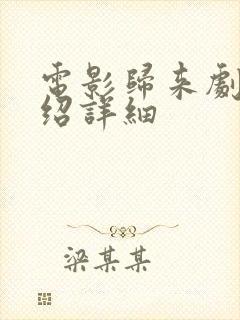 電影歸來劇
紹詳細
梁某某